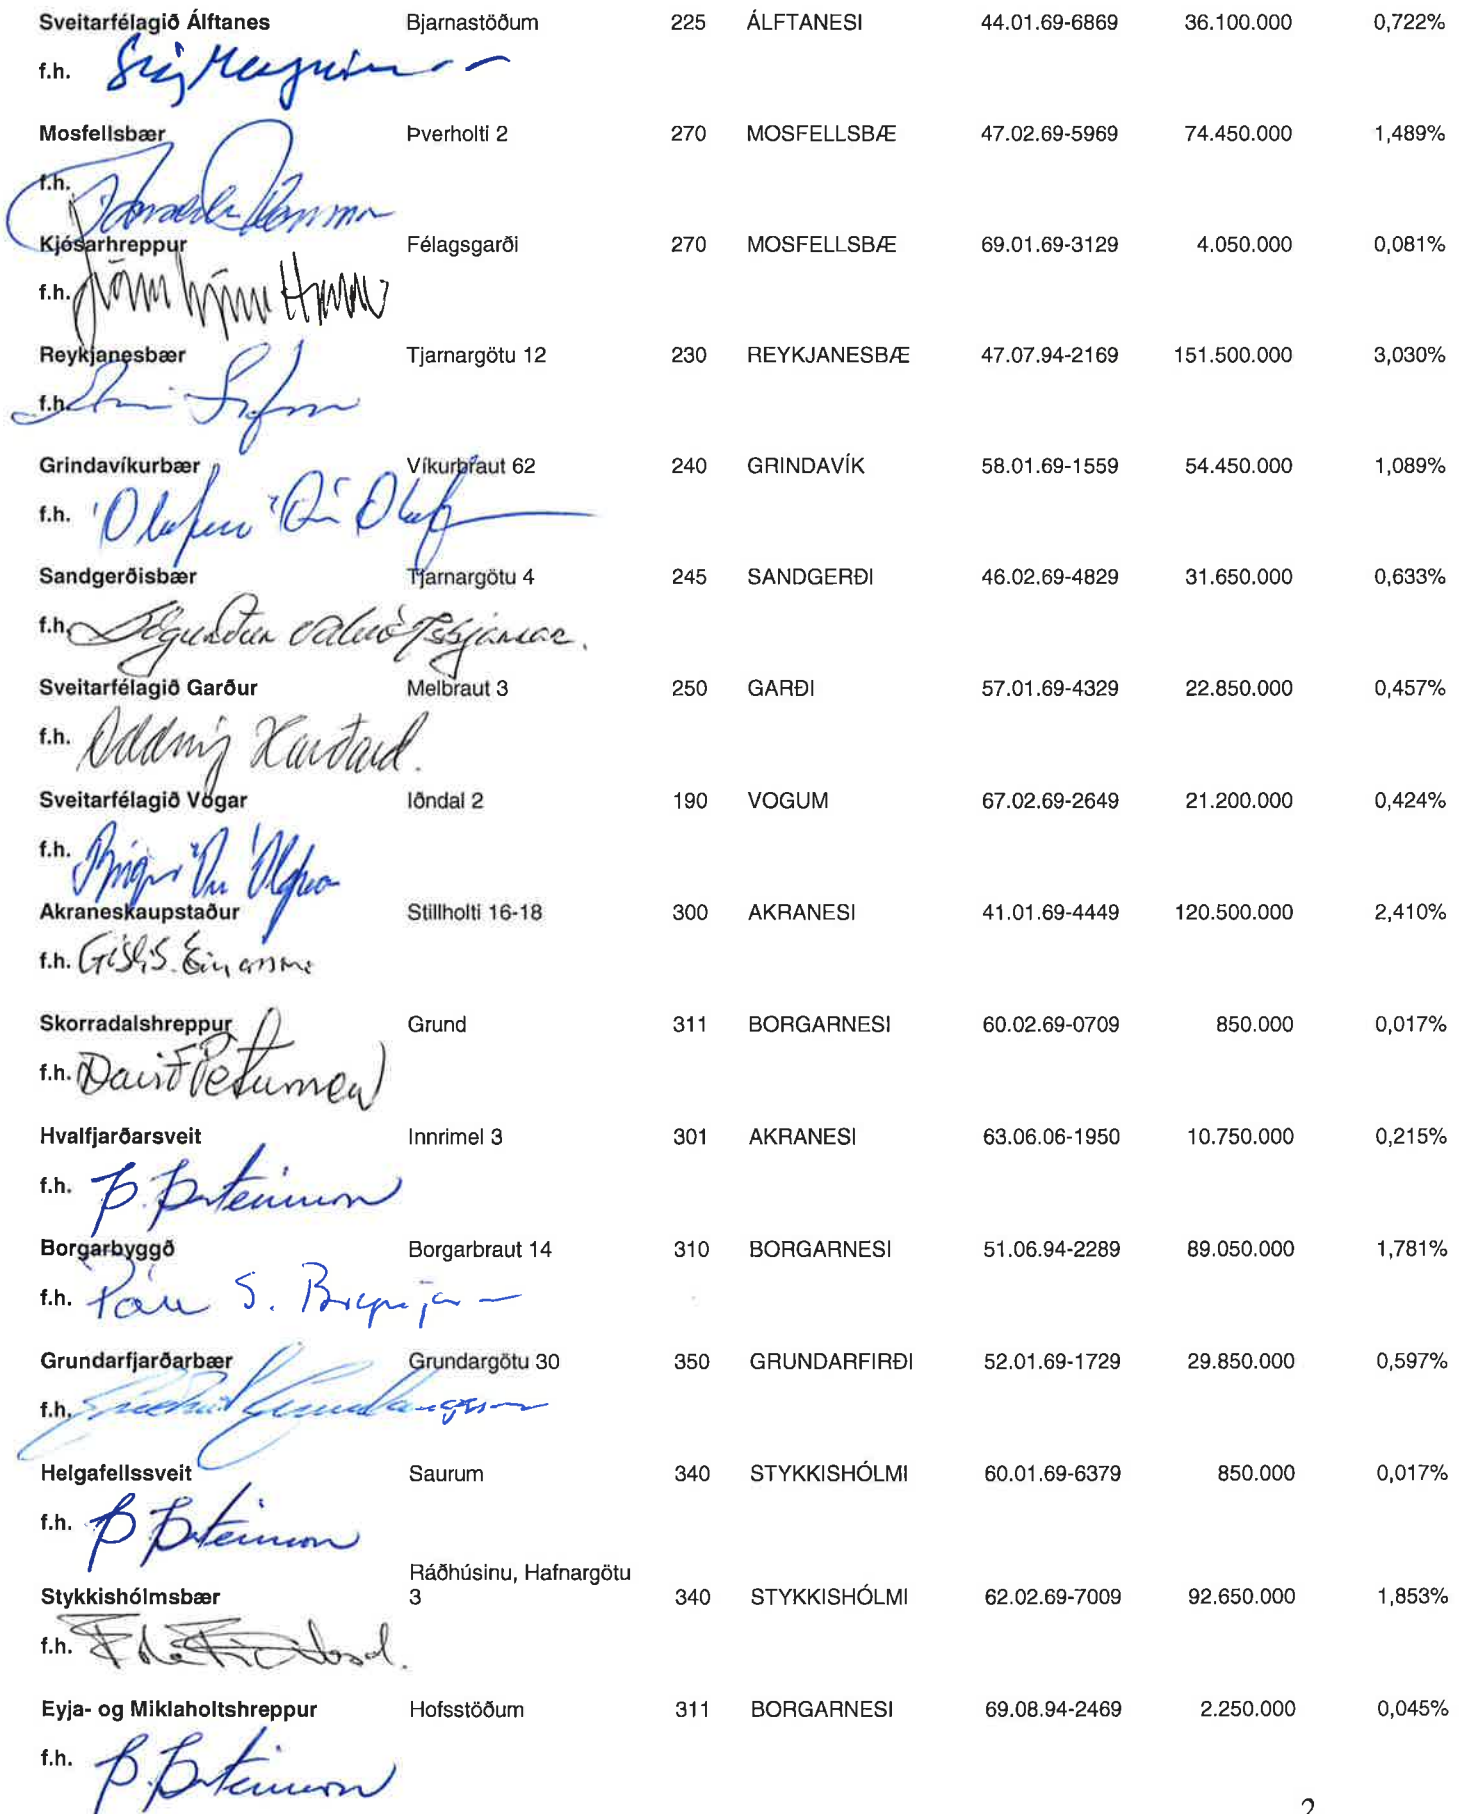 Sveitarfélagið Álftanes Bjarnastöðum 225 ÁLFTANESI 44.01.69-6869 36.100.000 0,722%
f.h.
Mosfellsbær Þverholti 2 270 MOSFELLSBÆ 47.02.69-5969 74.450.000 1,489%
f.h.
Kjósarhreppur Félagsgarði 270 MOSFELLSBÆ 69.01.69-3129 4.050.000 0,081%
f.h.
Reykjanesbær Tjarnargötu 12 230 REYKJANESBÆ 47.07.94-2169 151.500.000 3,030%
f.h.
Grindavíkurbær Víkurbraut 62 240 GRINDAVÍK 58.01.69-1559 54.450.000 1,089%
f.h.
Sandgerðisbær Tjarnargötu 4 245 SANDGERÐI 46.02.69-4829 31.650.000 0,633%
f.h.
Sveitarfélagið Garður Melbraut 3 250 GARÐI 57.01.69-4329 22.850.000 0,457%
f.h. Oddný Harðard.
Sveitarfélagið Vogar Iðndal 2 190 VOGUM 67.02.69-2649 21.200.000 0,424%
f.h.
Akraneskaupstaður Stillholti 16-18 300 AKRANESI 41.01.69-4449 120.500.000 2,410%
f.h. Gísli S. Einarsson
Skorradalshreppur Grund 311 BORGARNESI 60.02.69-0709 850.000 0,017%
f.h. Davíð Pétursson
Hvalfjarðarsveit Innrimel 3 301 AKRANESI 63.06.06-1950 10.750.000 0,215%
f.h.
Borgarbyggð Borgarbraut 14 310 BORGARNESI 51.06.94-2289 89.050.000 1,781%
f.h. Páll S. Brynjar
Grundarfjarðarbær Grundargötu 30 350 GRUNDARFIRÐI 52.01.69-1729 29.850.000 0,597%
f.h.
Helgafellssveit Saurum 340 STYKKISHÓLMI 60.01.69-6379 850.000 0,017%
f.h.
Ráðhúsinu, Hafnargötu
Stykkishólmsbær 3 340 STYKKISHÓLMI 62.02.69-7009 92.650.000 1,853%
f.h.
Eyja- og Miklaholtshreppur Hofsstöðum 311 BORGARNESI 69.08.94-2469 2.250.000 0,045%
f.h.
2